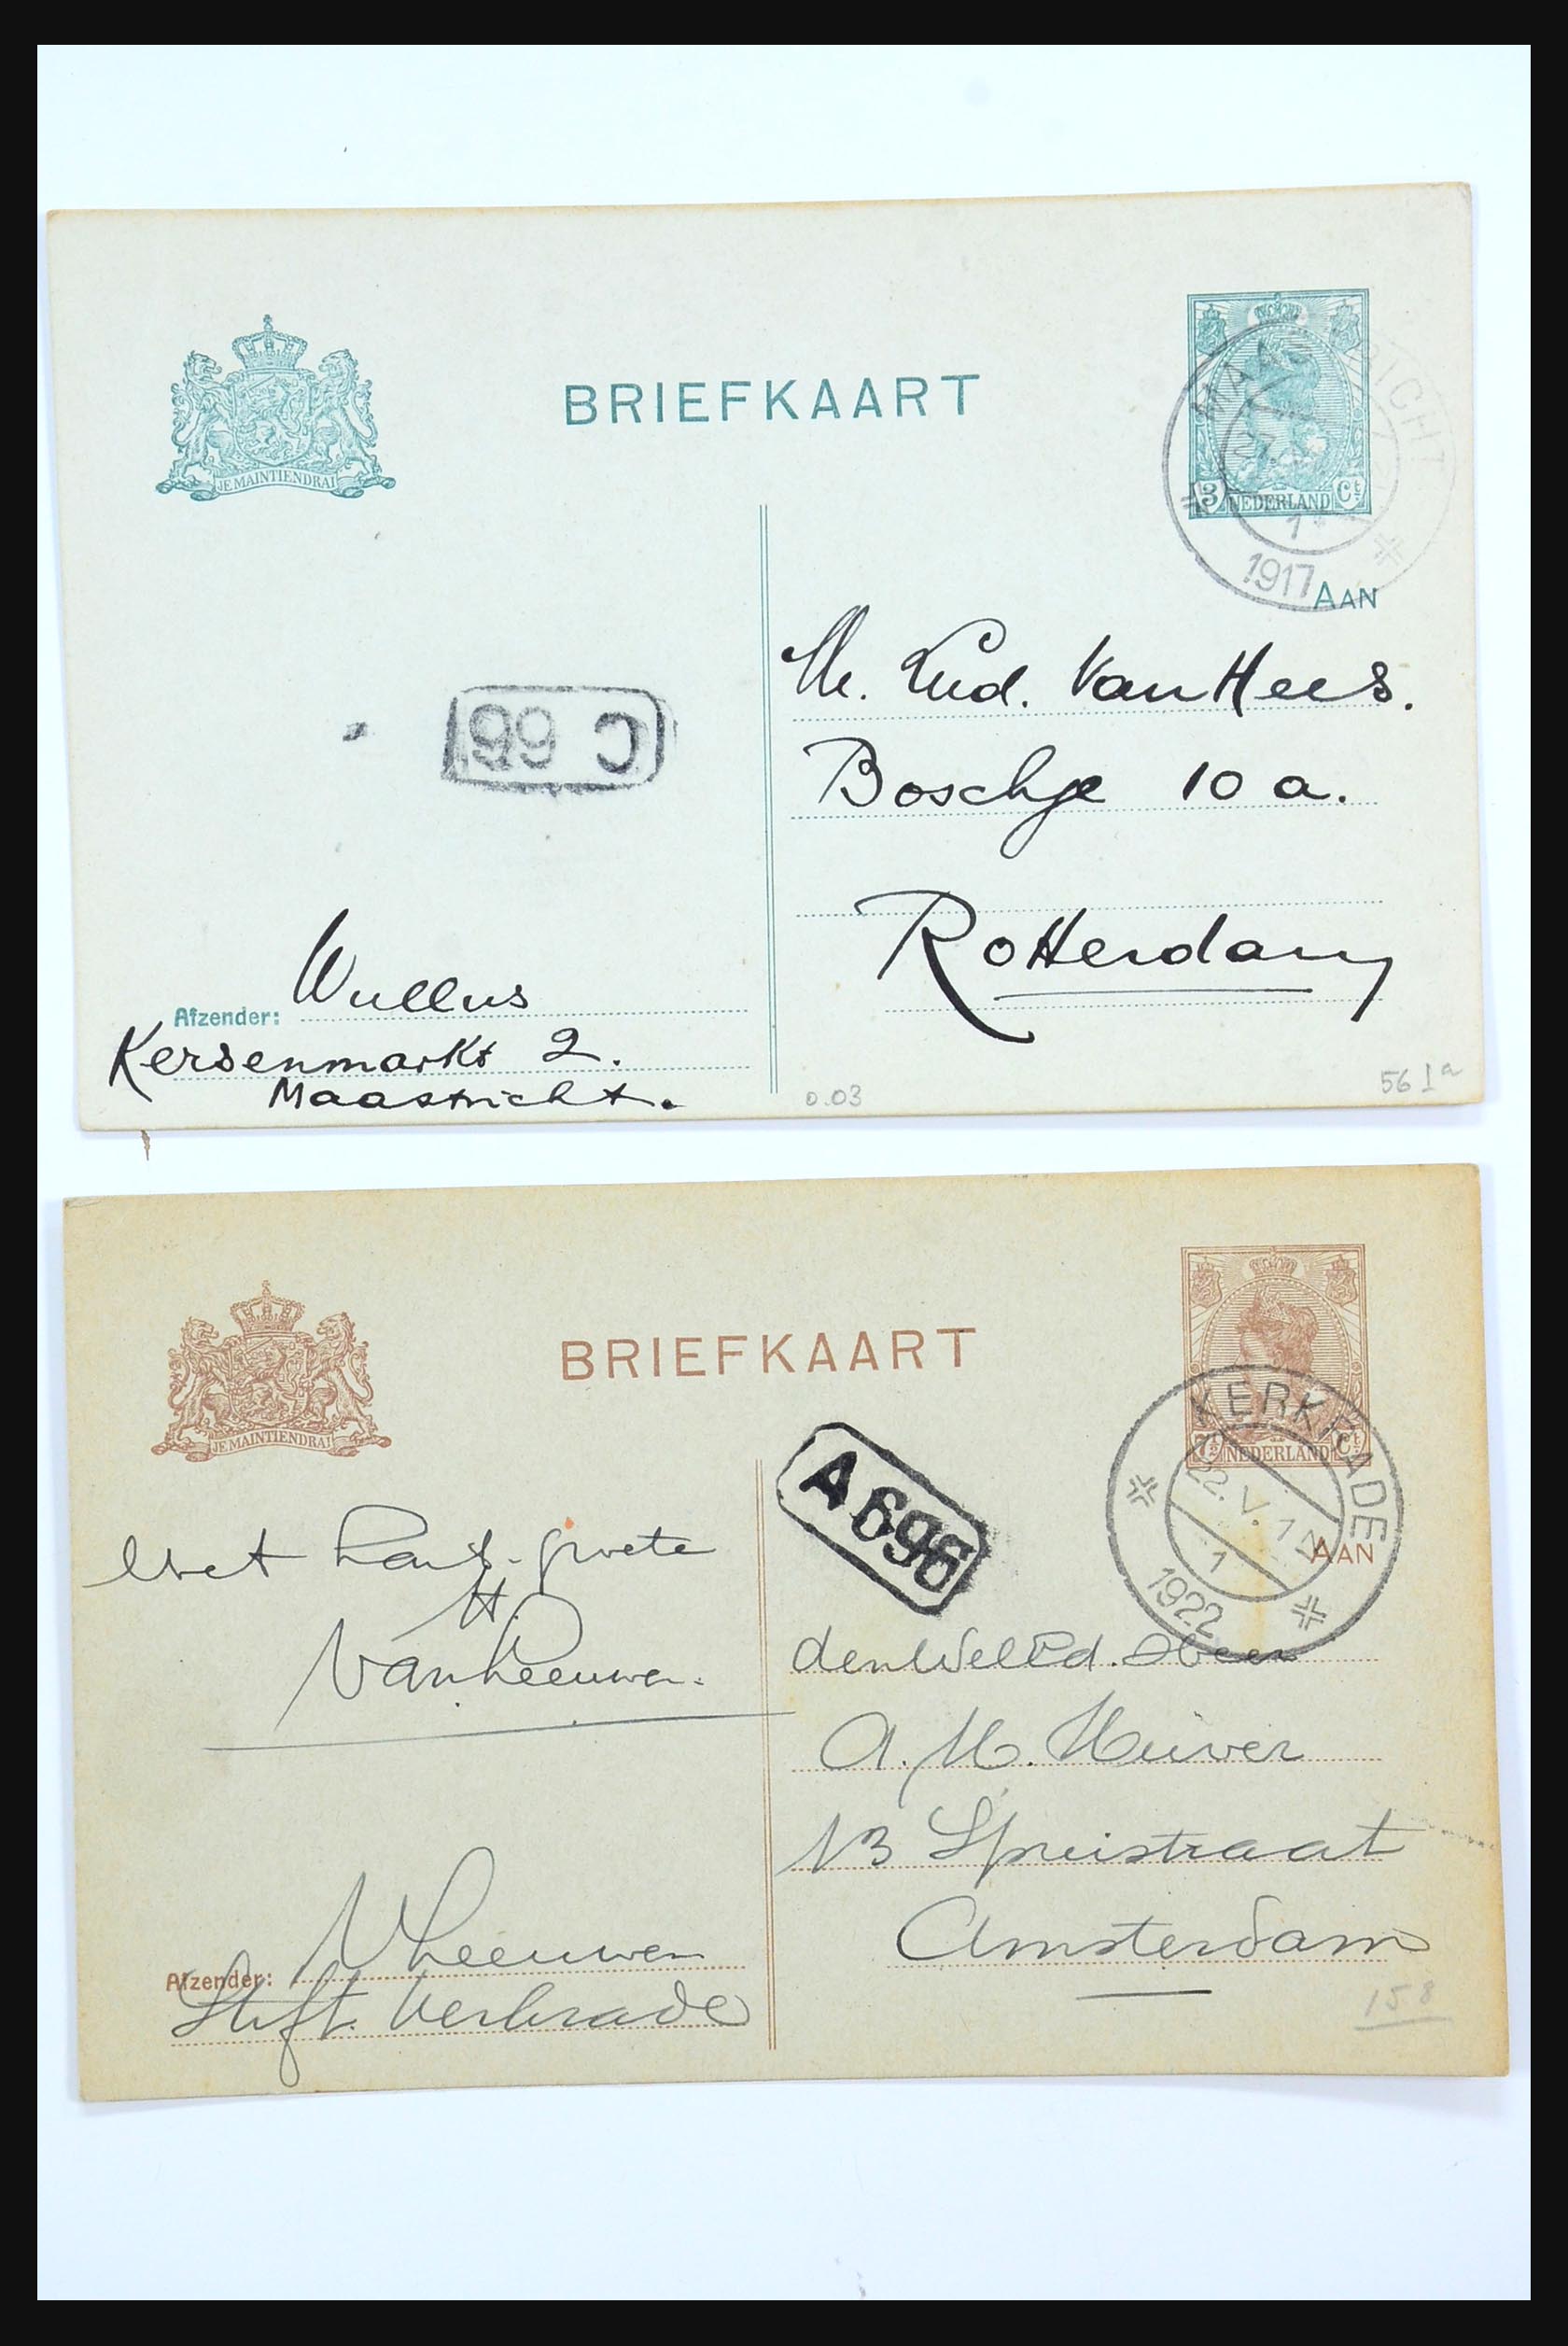 JE MAINTIENDRAI
BRIEFKAART
3 NEDERLAND Ct
MAASTRICHT
1
1917
AAN
M. Lud. Van Hees.
Boschje 10 a.
Rotterdam
C 66
Wullus
Afzender:
Kersenmarkt 2.
Maastricht.
0.03
56 Ia
JE MAINTIENDRAI
BRIEFKAART
7½ NEDERLAND Ct
KERKRADE
22.V.12
1
1922
AAN
A696
Met groete
H.
Van Leeuwen.
den WelEd. Heer
A. M.
13 Spuistraat
Amsterdam
V Leeuwen
Afzender:
158